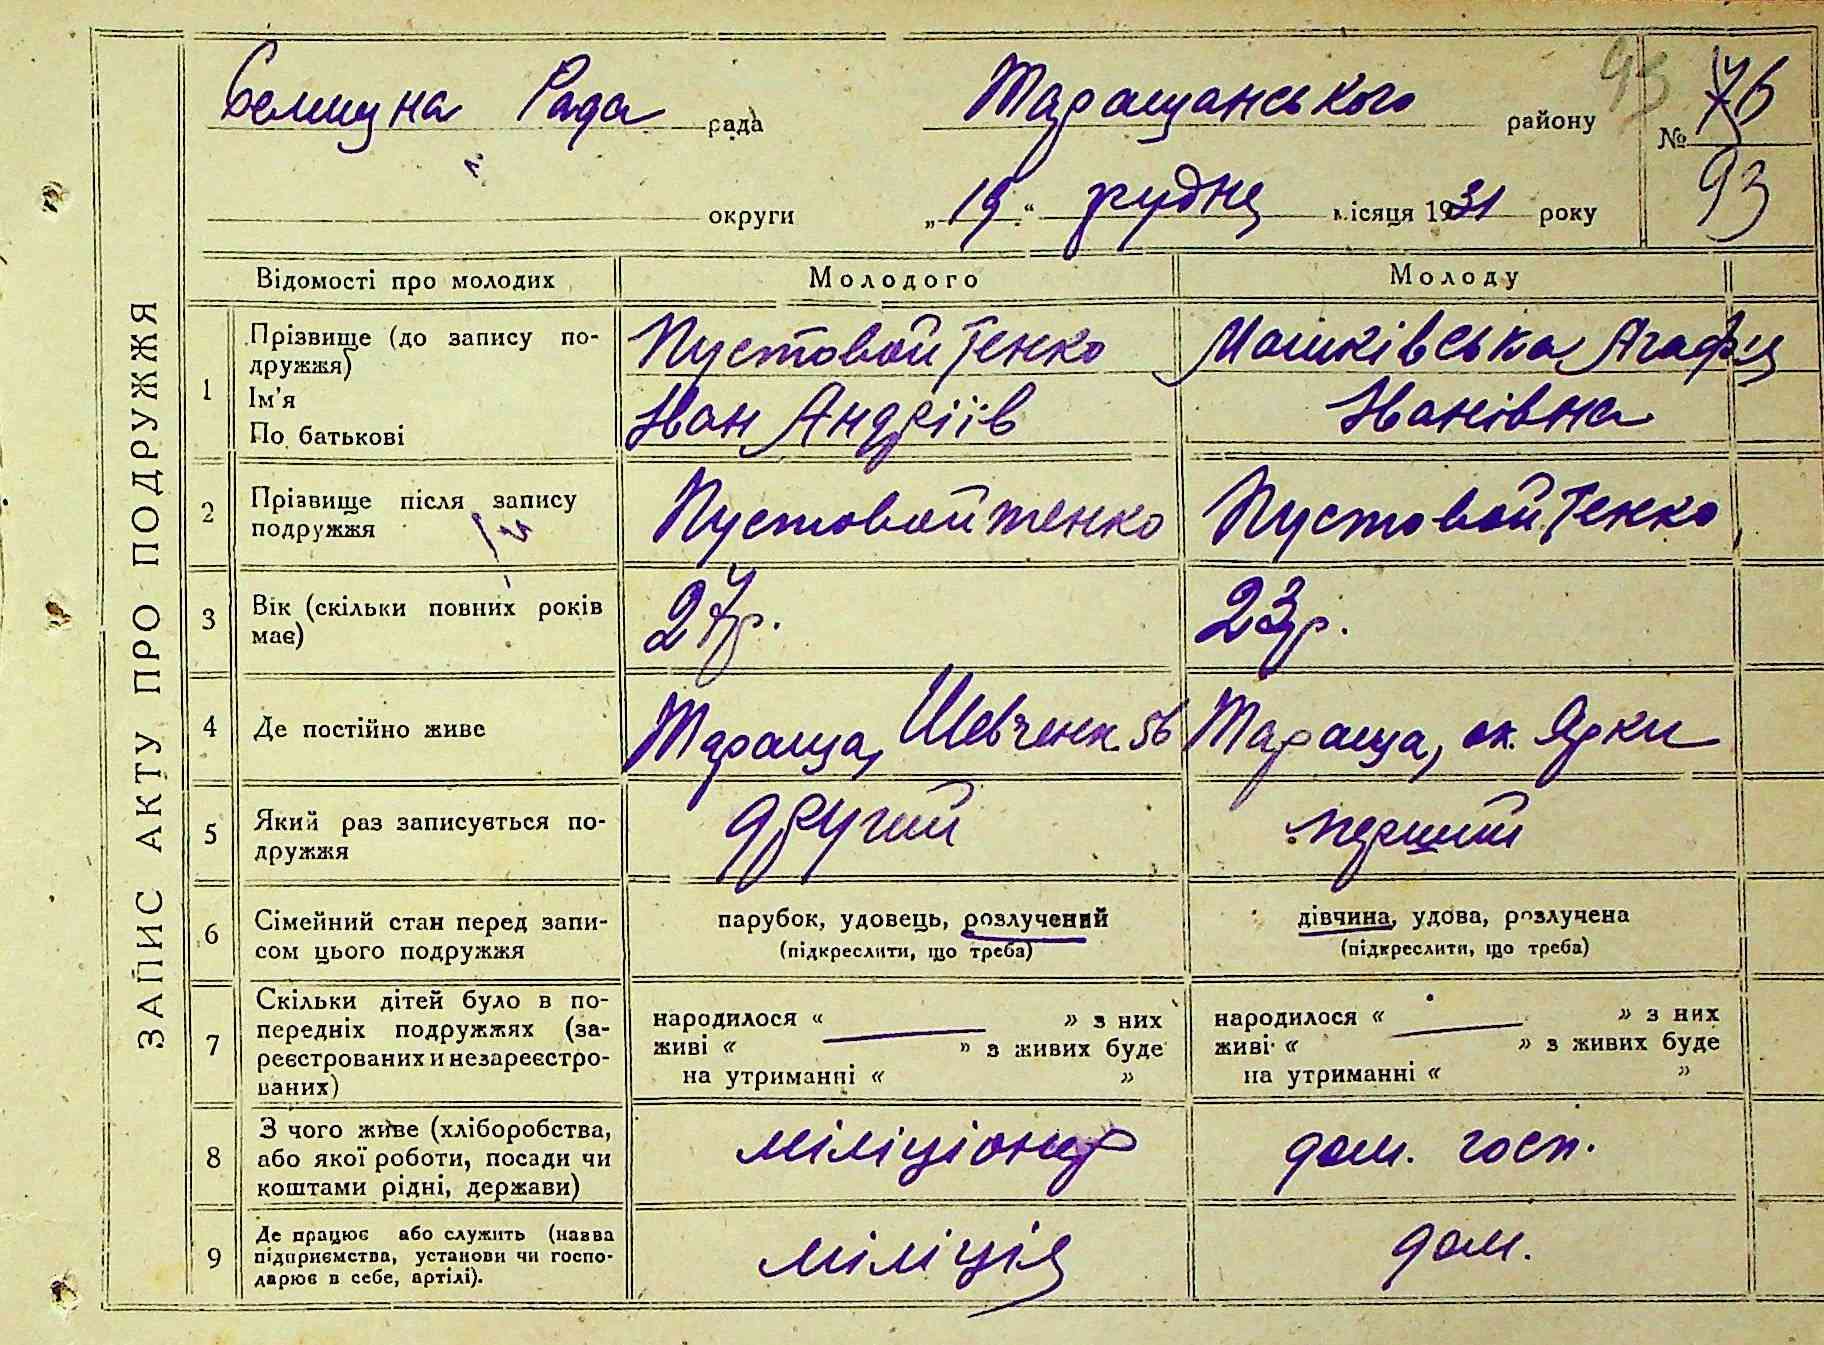 ЗАПИС АКТУ ПРО ПОДРУЖЖЯ
Селищна Рада рада Таращанського району № 76
93
округи „19“ грудня місяця 1931 року 93
Відомості про молодих Молодого Молоду
1 Прізвище (до запису подружжя) Пустовойтенко Машківська Агафія
Ім'я
По батькові Іван Андріїв Іванівна
2 Прізвище після запису Пустовойтенко Пустовойтенко
подружжя
3 Вік (скільки повних років 27 р. 23 р.
має)
4 Де постійно живе Тараща, Шевченк 56 Тараща, ок. Ярки
5 Який раз записується по- другий перший
дружжя
6 Сімейний стан перед запи- парубок, удовець, розлучений дівчина, удова, розлучена
сом цього подружжя (підкреслити, що треба) (підкреслити, що треба)
7 Скільки дітей було в по-
передніх подружжях (за- народилося « » з них народилося « » з них
реєстрованих и незареєстро- живі « » з живих буде живі « » з живих буде
ваних) на утриманні « » на утриманні « »
8 З чого живе (хліборобства,
або якої роботи, посади чи міліціонер дом. госп.
коштами рідні, держави)
9 Де працює або служить (назва
підприємства, установи чи госпо- міліція дом.
дарює в себе, артілі).